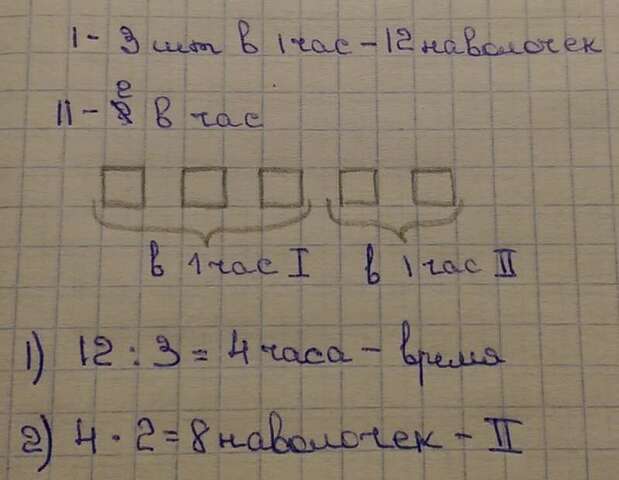 I - 3 шт в 1 час - 12 наволочек
II - 2 в час
в 1 час I в 1 час II
1) 12 : 3 = 4 часа - время
2) 4 · 2 = 8 наволочек - II